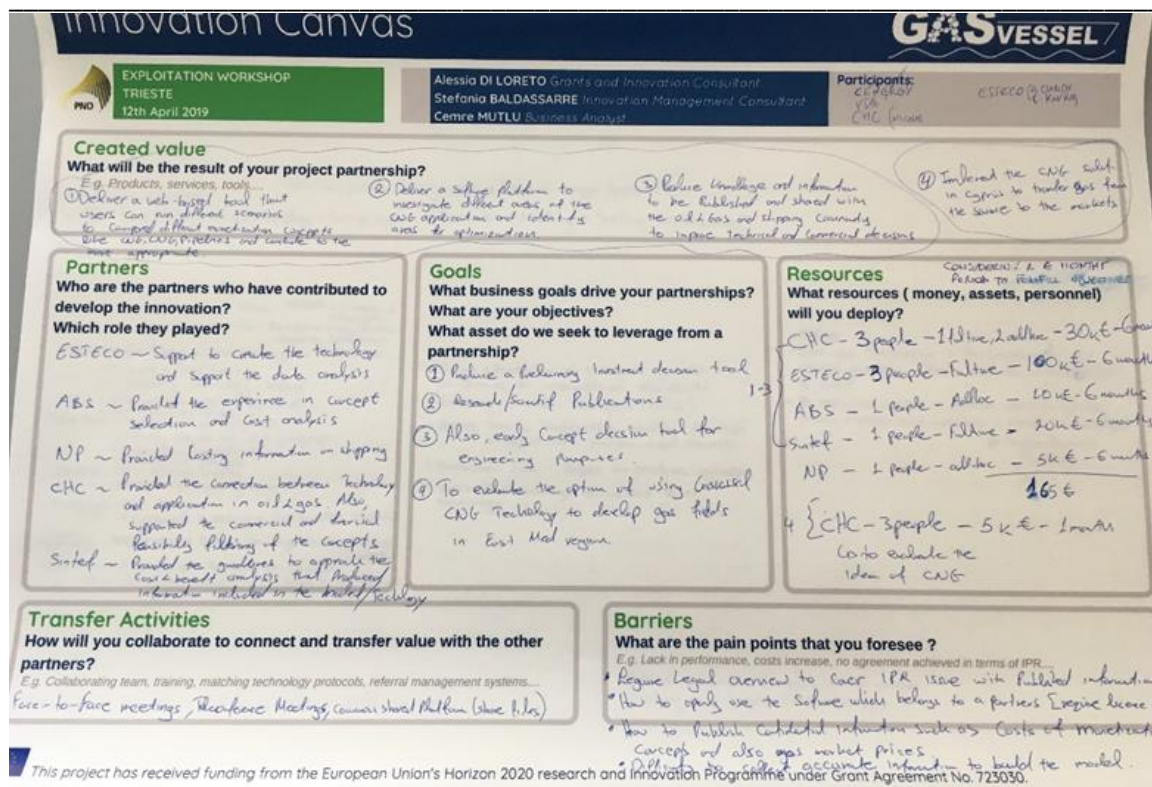 Innovation Canvas
GASVESSEL
PNO
EXPLOITATION WORKSHOP
TRIESTE
12th April 2019
Alessia DI LORETO Grants and Innovation Consultant
Stefania BALDASSARRE Innovation Management Consultant
Cemre MUTLU Business Analyst
Participants:
CHC
ESTECO
Created value
What will be the result of your project partnership?
E.g. Products, services, tools....
① Deliver a web-based tool that
users can run different scenarios
to different monetisation concepts
like CNG, Pipelines and to the
most appropriate.
② Deliver a platform to
investigate different areas of the
CNG application and identify
areas for optimization.
③ Produce knowledge and information
to be Published and shared with
the oil & Gas and shipping Community
to improve Technical and Commercial decisions
④ the CNG
in Cyprus to transfer gas from
the source to the markets
Partners
Who are the partners who have contributed to
develop the innovation?
Which role they played?
ESTECO ~ Support to create the technology
and support the data analysis
ABS ~ Provided the experience in concept
selection and Cost analysis
NP ~ Provided Costing information on shipping
CHC ~ Provided the connection between Technology
and application in oil & gas. Also,
supported the commercial and
feasibility filtering of the concepts
Sintef ~ Provided the guidelines to the
Cost & benefit analysis that Produced
information included in the Model/Techlogy
Goals
What business goals drive your partnerships?
What are your objectives?
What asset do we seek to leverage from a
partnership?
① Produce a Preliminary Investment decision tool
② Publications
③ Also, early Concept decision tool for
engineering purposes.
④ To evaluate the option of using Gasvessel
CNG Technology to develop gas fields
in East Med region.
Resources
PERIOD TO
What resources ( money, assets, personnel)
will you deploy?
1-3
CHC - 3 people - - 30k€ - 6 months
ESTECO - 3 people - Fulltime - 100k€ - 6 months
ABS - 1 people - Adhoc - 10k€ - 6 months
Sintef - 1 people - Fulltime - 20k€ - 6 months
NP - 1 people - adhoc - 5k€ - 6 months
165 €
4 { CHC - 3 people - 5k€ - 1 month
to evaluate the
idea of CNG
Transfer Activities
How will you collaborate to connect and transfer value with the other
partners?
E.g. Collaborating team, training, matching technology protocols, referral management systems....
Face-to-face meetings, Meetings, common shared Platform (share files)
Barriers
What are the pain points that you foresee ?
E.g. Lack in performance, costs increase, no agreement achieved in terms of IPR....
• Require Legal overview to Cover IPR issue with Published information
• How to openly use the Software which belongs to a partners
• How to Publish Confidential information such as Costs of
Concepts and also gas market prices
• to collect accurate information to build the model.
This project has received funding from the European Union's Horizon 2020 research and Innovation Programme under Grant Agreement No. 723030.